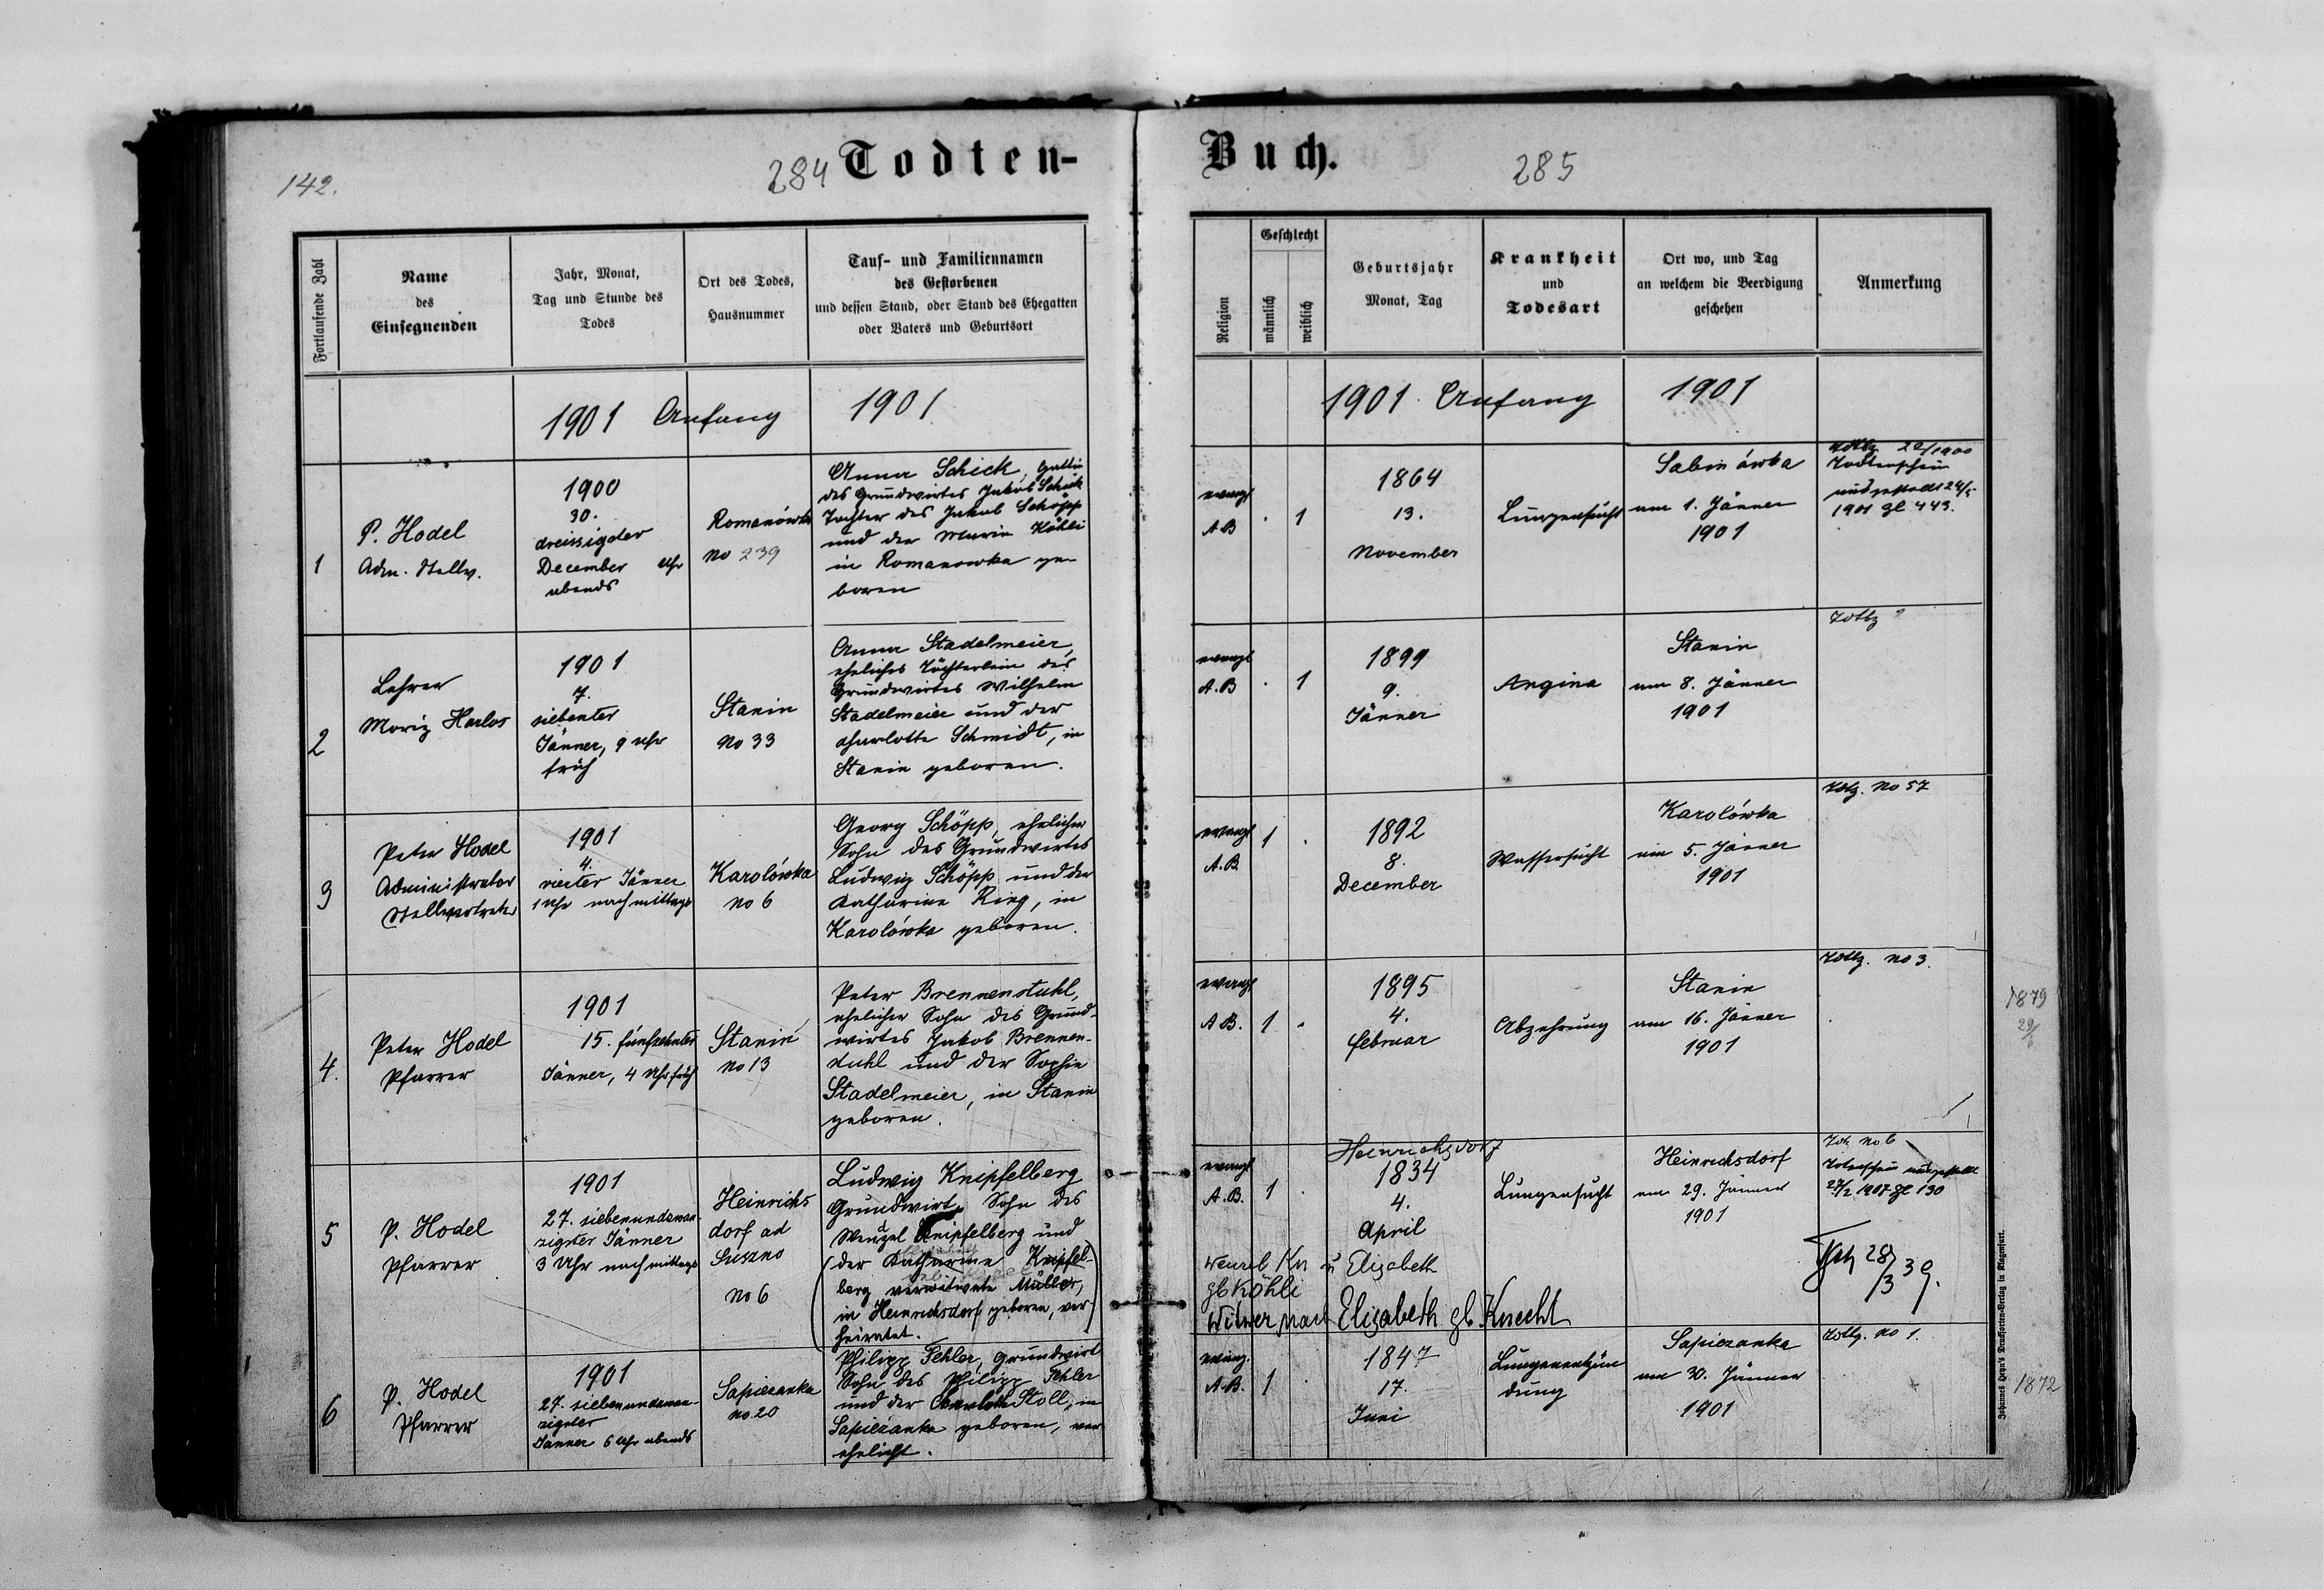 142.
284 Todten-
Fortlaufende Zahl
Name
des
Einsegnenden
Jahr, Monat,
Tag und Stunde des
Todes
Ort des Todes,
Hausnummer
Tauf- und Familiennamen
des Gestorbenen
und dessen Stand, oder Stand des Ehegatten
oder Vaters und Geburtsort
1901 Anfang 1901
1
P. Hodel
Adm. Stellv.
1900
30.
dreissigster
December Uhr
abends
Romanówka
No 239
Anna Schick, Gattin
des Grundwirtes Jakob Schick
Tochter des Jakob Schöpp
und der Maria Köhli
in Romanowka ge-
boren
2
Lehrer
Moriz Harlos
1901
7.
siebenter
Jänner, 9 Uhr
früh
Stanin
No 33
Anna Stadelmeier,
eheliches Töchterlein des
Grundwirtes Wilhelm
Stadelmeier und der
Charlotte Schmidt, in
Stanin geboren.
3
Peter Hodel
Administrator
Stellvertreter
1901
4.
vierter Jänner
1 Uhr nachmittags
Karolówka
No 6
Georg Schöpp, ehelicher
Sohn des Grundwirtes
Ludwig Schöpp und der
Katharina Ring, in
Karolówka geboren.
4.
Peter Hodel
Pfarrer
1901
15. fünfzehnter
Jänner, 4 Uhr früh
Stanin
No 13
Peter Brennenstuhl,
ehelicher Sohn des Grund-
wirtes Jakob Brennen-
stuhl und der Sophie
Stadelmeier, in Stanin
geboren.
5
P. Hodel
Pfarrer
1901
27. siebenundzwan-
zigster Jänner
3 Uhr nachmittags
Heinrichs
dorf ad
Suszno
No 6
Ludwig Knipfelberg
Grundwirt, Sohn des
Wenzel Knipfelberg und
(der Katharina Knipfel-
berg verwitwete Müller,
in Heinrichsdorf geboren, ver-)
heiratet.
6
P. Hodel
Pfarrer
1901
27. siebenundzwan-
zigster
Jänner 6 Uhr abends
Sapiezanka
No. 20
Philipp Fehler, Grundwirt
Sohn des Philipp Fehler
und der Charlotte Stoll, in
Sapiezanka geboren, ver
ehelicht.
Buch. 285
Religion
Geschlecht
männlich
weiblich
Geburtsjahr
Monat, Tag
Krankheit
und
Todesart
Ort wo, und Tag
an welchem die Beerdigung
geschehen
Anmerkung
1901 Anfang 1901
evangl
A B
. 1
1864
13.
November
Lungensucht
Sabinówka
am 1. Jänner
1901
22/1900
Todtenschein
ausgestellt 24/5
1901 Zl 443.
evangl
A. B
. 1
1899
9.
Jänner
Angina
Stanin
am 8. Jänner
1901
evangl
A. B.
1 .
1892
8.
December
Wassersucht
Karolówka
am 5. Jänner
1901
No 57
evangl
A B.
1 .
1895
4.
Februar
Abzehrung
Stanin
am 16. Jänner
1901
No 3.
evangl
A. B.
1 .
Heinrichsdorf
1834
4.
April
Lungensucht
Heinrichsdorf
am 29. Jänner
1901
No 6
Totenschein ausgestellt
27/2 1907 Zl 130
28/3 39.
Wenzel Kn u Elizabeth
gb Köhli
Witwer nach Elizabeth gb. Knecht
evang.
A. B.
1 .
1847
17.
Juni
Lungenentzün
dung
Sapiezanka
am 30. Jänner
1901
No 1.
1879
1872
Johannes Heyn's Drucksorten-Verlag in Klagenfurt.